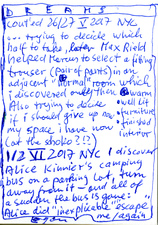 DREAMS
cont'ed 26/27 V 2017 NYC
... trying to decide which
half to take, later Max Rieid
helped Marcus to select a fitting
trouser (pair of pants) in an
adjacent normal room which
i discovered only then: warm
Also trying to decide well lit
if i should give up now furniture
my space i have now finished
(at the shoko?!?) interior
1/2 VI 2017 NYC I discover
Alice Kimier's camping
bus on a parking lot, turn
away from it - and all of
a sudden the bus is gone:
Alice did "inexplicable escape"
me/again